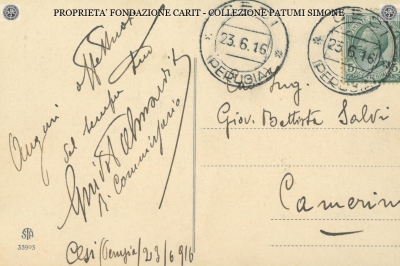 PROPRIETA' FONDAZIONE CARIT - COLLEZIONE PATUMI SIMONE
CESI
23.6.16
(PERUGIA)
CESI
23.6.16
(PERUGIA)
Auguri affettuosi
dal sempre tuo
R. Commissario
Cesi (Perugia) 23/6 916
Ing.
Giov. Battista Salvi
Camerino
STA
33993